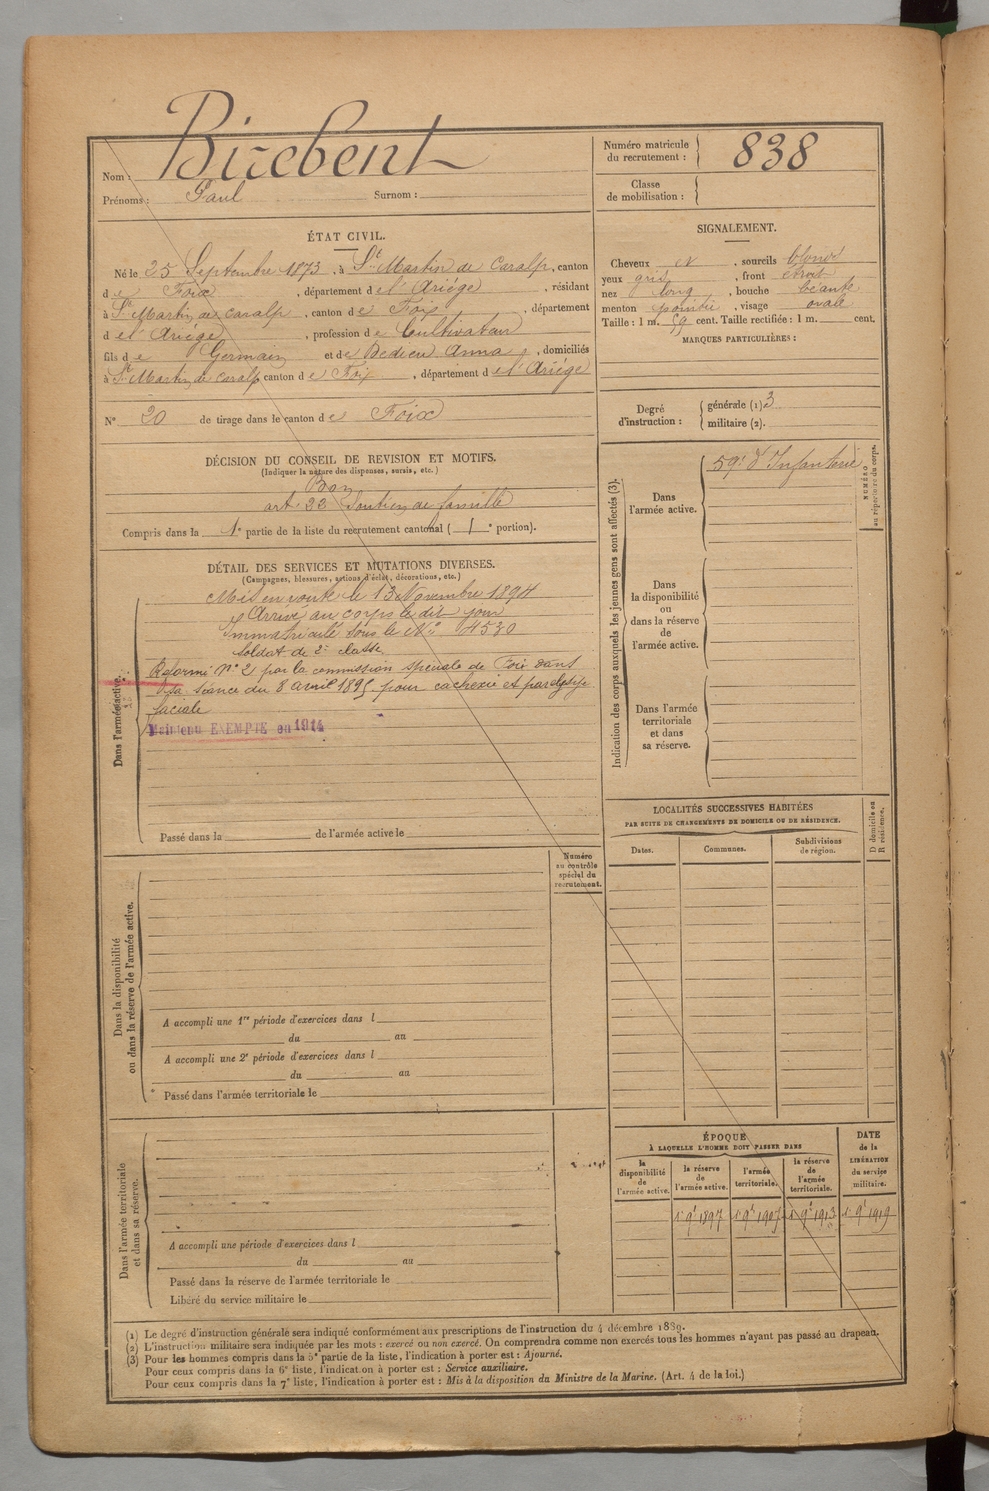 Nom : Birebent
Prénoms : Paul Surnom :
Numéro matricule du recrutement : 838
Classe de mobilisation :
ÉTAT CIVIL.
Né le 25 Septembre 1873, à St Martin de Caralp, canton
de Foix, département de l'Ariége, résidant
à St Martin de Caralp, canton de Foix, département
de l'Ariége, profession de Cultivateur
fils de Germain et de Bedieu Anna, domiciliés
à St Martin de Caralp canton de Foix, département de l'Ariége
N° 20 de tirage dans le canton de Foix
SIGNALEMENT.
Cheveux et, sourcils blonds
yeux gris, front étroit
nez long, bouche béante
menton pointu, visage ovale
Taille : 1 m. 59 cent. Taille rectifiée : 1 m. cent.
MARQUES PARTICULIÈRES :
Degré d'instruction : générale (1) 3
militaire (2).
DÉCISION DU CONSEIL DE REVISION ET MOTIFS.
(Indiquer la nature des dispenses, sursis, etc.)
Bon
art. 22 Soutien de famille
Compris dans la 1e partie de la liste du recrutement cantonal ( 1e portion).
DÉTAIL DES SERVICES ET MUTATIONS DIVERSES.
(Campagnes, blessures, actions d'éclat, décorations, etc.)
Dans l'armée active.
Mis en route le 13 Novembre 1894
Arrivé au corps le dit jour
Immatriculé sous le N° 4530
soldat de 2e classe.
Réformé N° 2 par la commission spéciale de Foix dans
sa séance du 8 avril 1895 pour cachexie et paralysie
faciale
Maintenu EXEMPTE en 1914
Passé dans la de l'armée active le
Indication des corps auxquels les jeunes gens sont affectés (3).
Dans l'armée active.
59e d'Infanterie
NUMÉRO au répertoire du corps.
Dans la disponibilité ou dans la réserve de l'armée active.
Dans l'armée territoriale et dans sa réserve.
LOCALITÉS SUCCESSIVES HABITÉES
PAR SUITE DE CHANGEMENTS DE DOMICILE OU DE RÉSIDENCE.
Dates. Communes. Subdivisions de région. D domicile ou R résidence.
Numéro au contrôle spécial du recrutement.
Dans la disponibilité ou dans la réserve de l'armée active.
A accompli une 1re période d'exercices dans l
du au
A accompli une 2e période d'exercices dans l
du au
Passé dans l'armée territoriale le
Dans l'armée territoriale et dans sa réserve.
A accompli une période d'exercices dans l
du au
Passé dans la réserve de l'armée territoriale le
Libéré du service militaire le
ÉPOQUE
À LAQUELLE L'HOMME DOIT PASSER DANS
la disponibilité de l'armée active. la réserve de l'armée active. l'armée territoriale. la réserve de l'armée territoriale.
DATE de la LIBÉRATION du service militaire.
1r 9e 1897 1r 9e 1907 1r 9e 1913 1r 9e 1919
(1) Le degré d'instruction générale sera indiqué conformément aux prescriptions de l'instruction du 4 décembre 1889.
(2) L'instruction militaire sera indiquée par les mots : exercé ou non exercé. On comprendra comme non exercés tous les hommes n'ayant pas passé au drapeau.
(3) Pour les hommes compris dans la 5e partie de la liste, l'indication à porter est : Ajourné.
Pour ceux compris dans la 6e liste, l'indication à porter est : Service auxiliaire.
Pour ceux compris dans la 7e liste, l'indication à porter est : Mis à la disposition du Ministre de la Marine. (Art. 4 de la loi.)